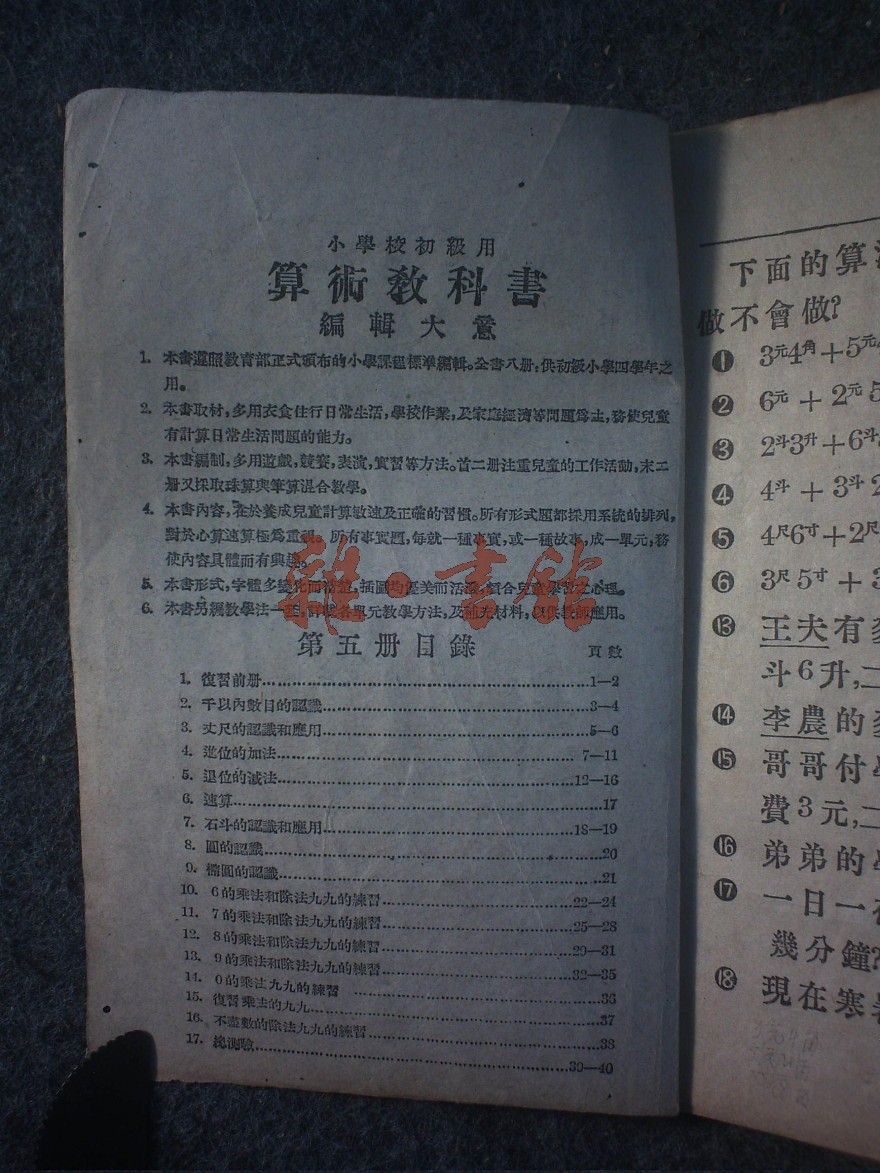 小學校初級用
算術教科書
編輯大意
1. 本書遵照教育部正式頒布的小學課程標準編輯。全書八册,供初級小學四學年之
用。
2. 本書取材,多用衣食住行日常生活,學校作業,及家庭經濟等問題爲主,務使兒童
有計算日常生活問題的能力。
3. 本書編制,多用遊戲,競賽,表演,實習等方法。首二册注重兒童的工作活動,末二
册又採取珠算與筆算混合教學。
4. 本書內容,在於養成兒童計算敏速及正確的習慣。所有形式題都採用系統的排列,
對於心算速算極爲重視。所有事實題,每就一種事實,或一種故事,成一單元,務
使內容具體而有興趣。
5. 本書形式,字體多變化而清楚,插圖均優美而活潑,適合兒童學習之心理。
6. 本書另編教學法一套,詳載各單元教學方法,及補充材料,以供教師應用。
雜·書館
第五册目錄 頁數
1. 復習前册 1—2
2. 千以內數目的認識 3—4
3. 丈尺的認識和應用 5—6
4. 進位的加法 7—11
5. 退位的減法 12—16
6. 速算 17
7. 石斗的認識和應用 18—19
8. 圓的認識 20
9. 橢圓的認識 21
10. 6的乘法和除法九九的練習 22—24
11. 7的乘法和除法九九的練習 25—28
12. 8的乘法和除法九九的練習 29—31
13. 9的乘法和除法九九的練習 32—35
14. 0的乘法九九的練習 36
15. 復習乘法的九九 37
16. 不盡數的除法九九的練習 38
17. 總測驗 39—40
下面的算
做不會做?
❶ 3元4角+5元
❷ 6元 + 2元5
❸ 2斗3升+6斗
❹ 4斗 + 3斗2
❺ 4尺6寸+2尺
❻ 3尺5寸 + 3
⓭ 王夫有麥
斗6升,二
⓮ 李農的
⓯ 哥哥付
費3元,二
⓰ 弟弟的
⓱ 一日一夜
幾分鐘?
⓲ 現在寒暑